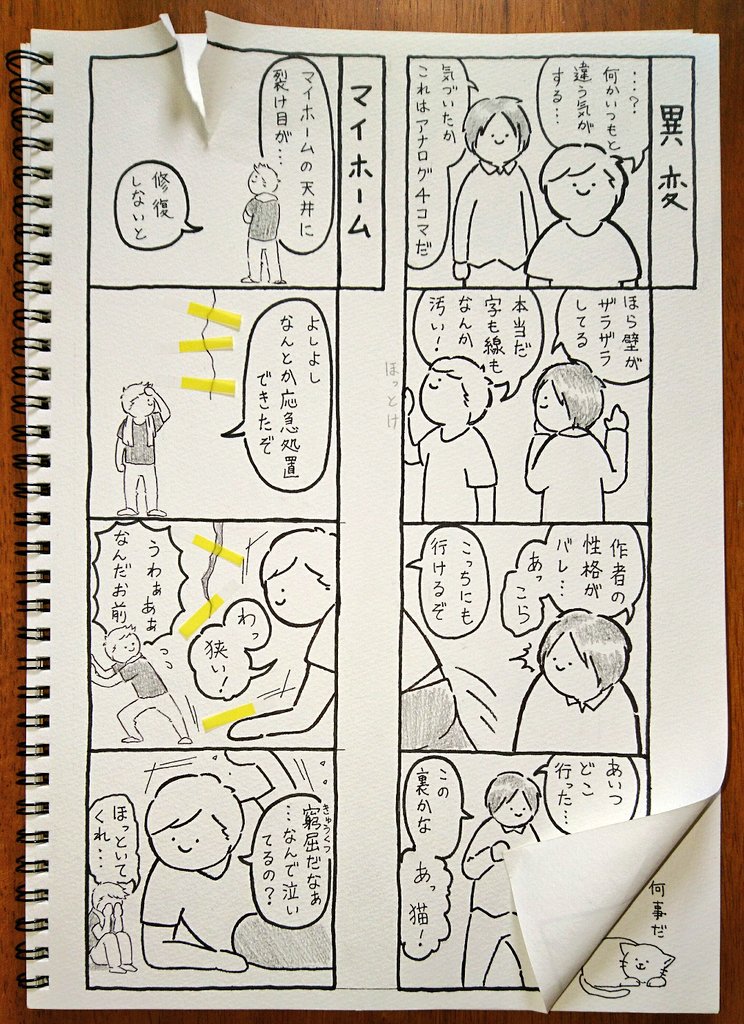 異変
…?
何かいつもと
違う気が
する…
気づいたか
これはアナログ4コマだ
ほら壁が
ザラザラ
してる
本当だ
字も線も
なんか
汚い!
ほっとけ
作者の
性格が
バレ…
あっこら
こっちにも
行けるぞ
あいつ
どこ
行った…
この
裏かな
あっ
猫!
何事だ
マイホーム
マイホームの天井に
裂け目が…
修復
しないと
よしよし
なんとか応急処置
できたぞ
わっ
狭い!
うわぁあぁ
なんだお前
窮屈だなぁ
きゅうくつ
…なんで泣い
てるの?
ほっといて
くれ…